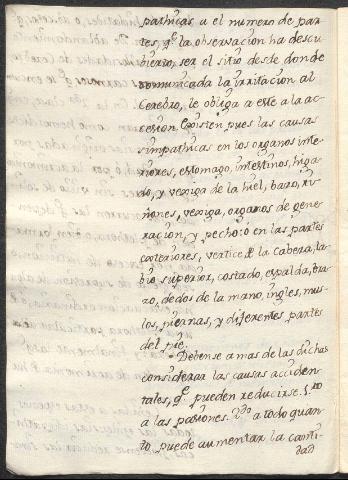 pathicas a el numero de par-
tes, q.e la observacion ha descu-
bierto, ser el sitio desde donde
comunicada la irritacion al
Cerebro, le obliga a este a la ac-
cesion. Existen pues las causas
simpathicas en los organos inte-
riores, estomago, intestinos, higa-
do, y vexiga de la hiel, bazo, ri-
ñones, vexiga, organos de gene-
racion, y pecho: o en las partes
exteriores, vertice, de la cabeza, la-
bio superior, costado, espalda, bra-
zo, dedos de la mano, ingles, mus-
los, piernas, y diferentes partes
del pie.
Debense a mas de las dichas
considerar las causas acciden-
tales, q.e pueden reducirse. 1.mo
a las pasiones. 2.do a todo quan-
to puede aumentar la canti-
dad